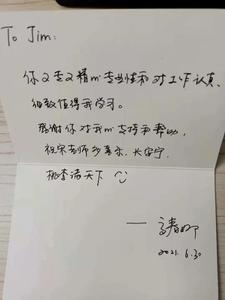 To Jim:
你又专又精的专业性和对工作认真、
细致值得我学习。
感谢你对我的支持和帮助,
祝宋老师多喜乐、长安宁,
桃李满天下
2021.6.30